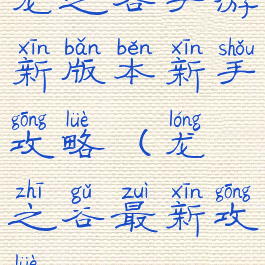 龙之谷手游
xīn bǎn běn xīn shǒu
新版本新手
gōng lüè lóng
攻略（龙
zhī gǔ zuì xīn gōng
之谷最新攻
lüè